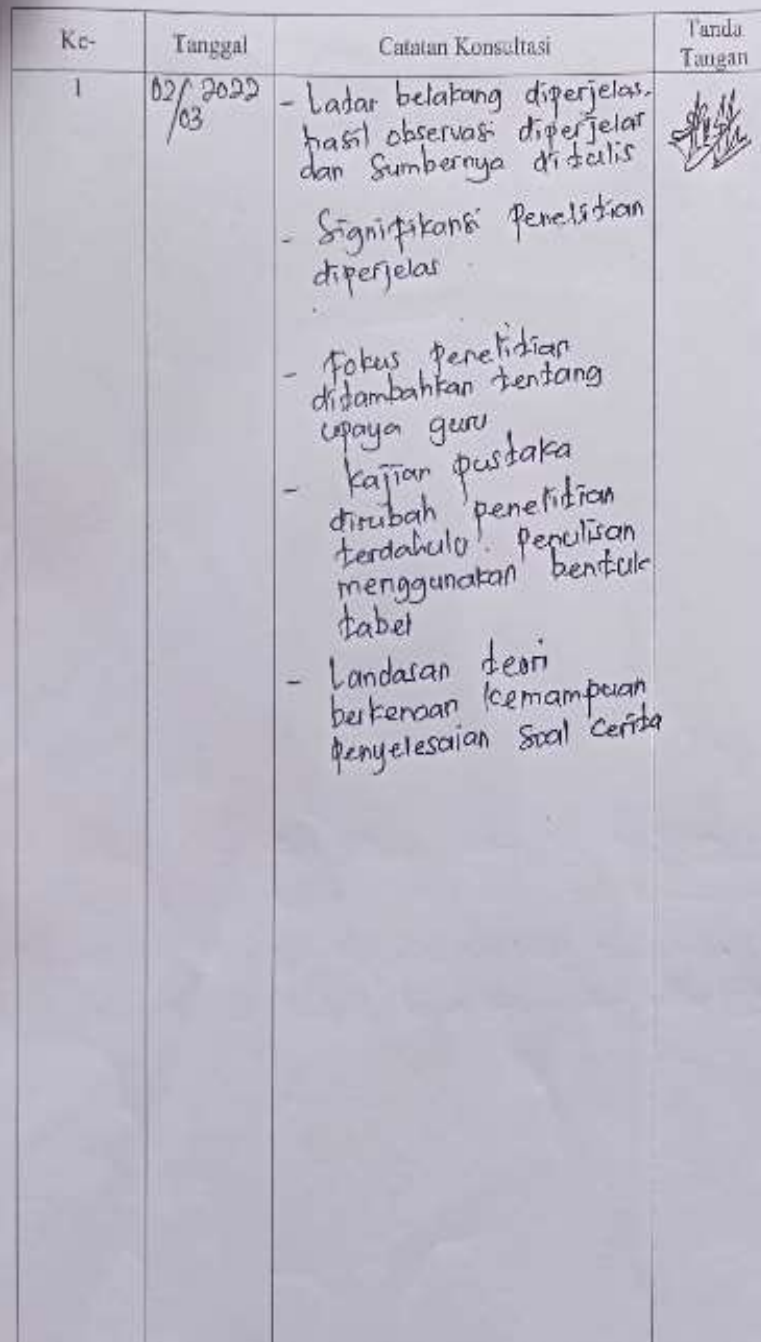 Ke-
Tanggal
Catatan Konsultasi
Tanda
Tangan
1
02/ 2022
/03
- Latar belakang diperjelas.
hasil observasi diperjelas
dan Sumbernya ditulis
- Signifikansi Penelitian
diperjelas
- Fokus Penelitian
ditambahkan tentang
upaya guru
- Kajian pustaka
dirubah penelitian
terdahulu. Penulisan
menggunakan bentuk
tabel
- Landasan teori
berkenaan kemampuan
Penyelesaian Soal Cerita